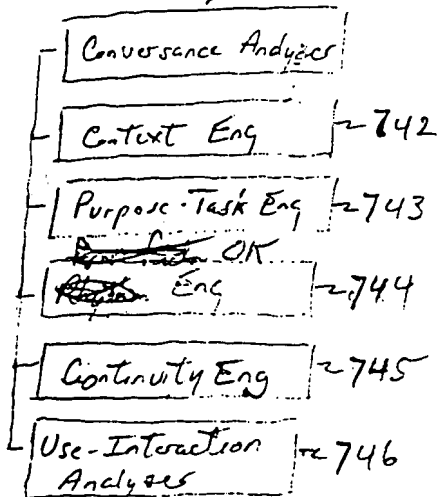 Conversance Analyses
Context Eng ~ 742
Purpose-Task Eng ~ 743
OK
Eng ~ 744
Continuity Eng ~ 745
Use-Interaction ~ 746
Analyses